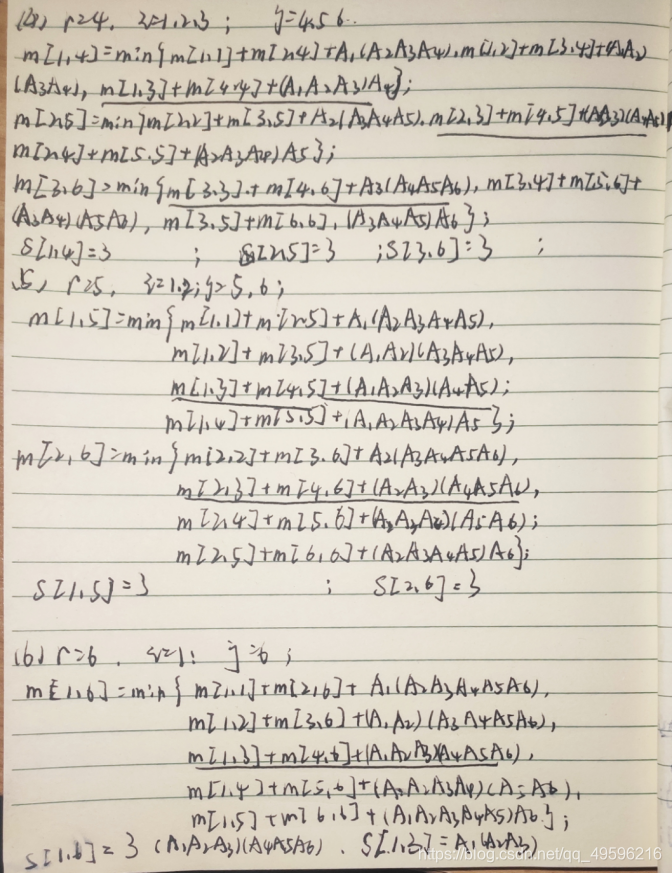 (4) r=4, i=1,2,3; j=4,5,6.
m[1,4]=min{m[1,1]+m[2,4]+A1(A2A3A4),m[1,2]+m[3,4]+(A1A2)
(A3A4), m[1,3]+m[4,4]+(A1A2A3)A4};
m[2,5]=min{m[2,2]+m[3,5]+A2(A3A4A5), m[2,3]+m[4,5]+(A2A3)(A4A5),
m[2,4]+m[5,5]+(A2A3A4)A5};
m[3,6]=min{m[3,3]+m[4,6]+A3(A4A5A6), m[3,4]+m[5,6]+
(A3A4)(A5A6), m[3,5]+m[6,6],(A3A4A5)A6};
S[1,4]=3 ; S[2,5]=3 ;S[3,6]=3 ;
(5) r=5, i=1,2;j=5,6;
m[1,5]=min{m[1,1]+m[2,5]+A1(A2A3A4A5),
m[1,2]+m[3,5]+(A1A2)(A3A4A5),
m[1,3]+m[4,5]+(A1A2A3)(A4A5);
m[1,4]+m[5,5]+(A1A2A3A4)A5};
m[2,6]=min{m[2,2]+m[3,6]+A2(A3A4A5A6),
m[2,3]+m[4,6]+(A2A3)(A4A5A6),
m[2,4]+m[5,6]+(A2A3A4)(A5A6);
m[2,5]+m[6,6]+(A2A3A4A5)A6};
S[1,5]=3 ; S[2,6]=3
(6) r=6, i=1; j=6;
m[1,6]=min{m[1,1]+m[2,6]+A1(A2A3A4A5A6),
m[1,2]+m[3,6]+(A1A2)(A3A4A5A6),
m[1,3]+m[4,6]+(A1A2A3)(A4A5A6),
m[1,4]+m[5,6]+(A1A2A3A4)(A5A6),
m[1,5]+m[6,6]+(A1A2A3A4A5)A6};
S[1,6]=3 (A1A2A3)(A4A5A6). S[1,3]=A1(A2A3)
https://blog.csdn.net/qq_49596216